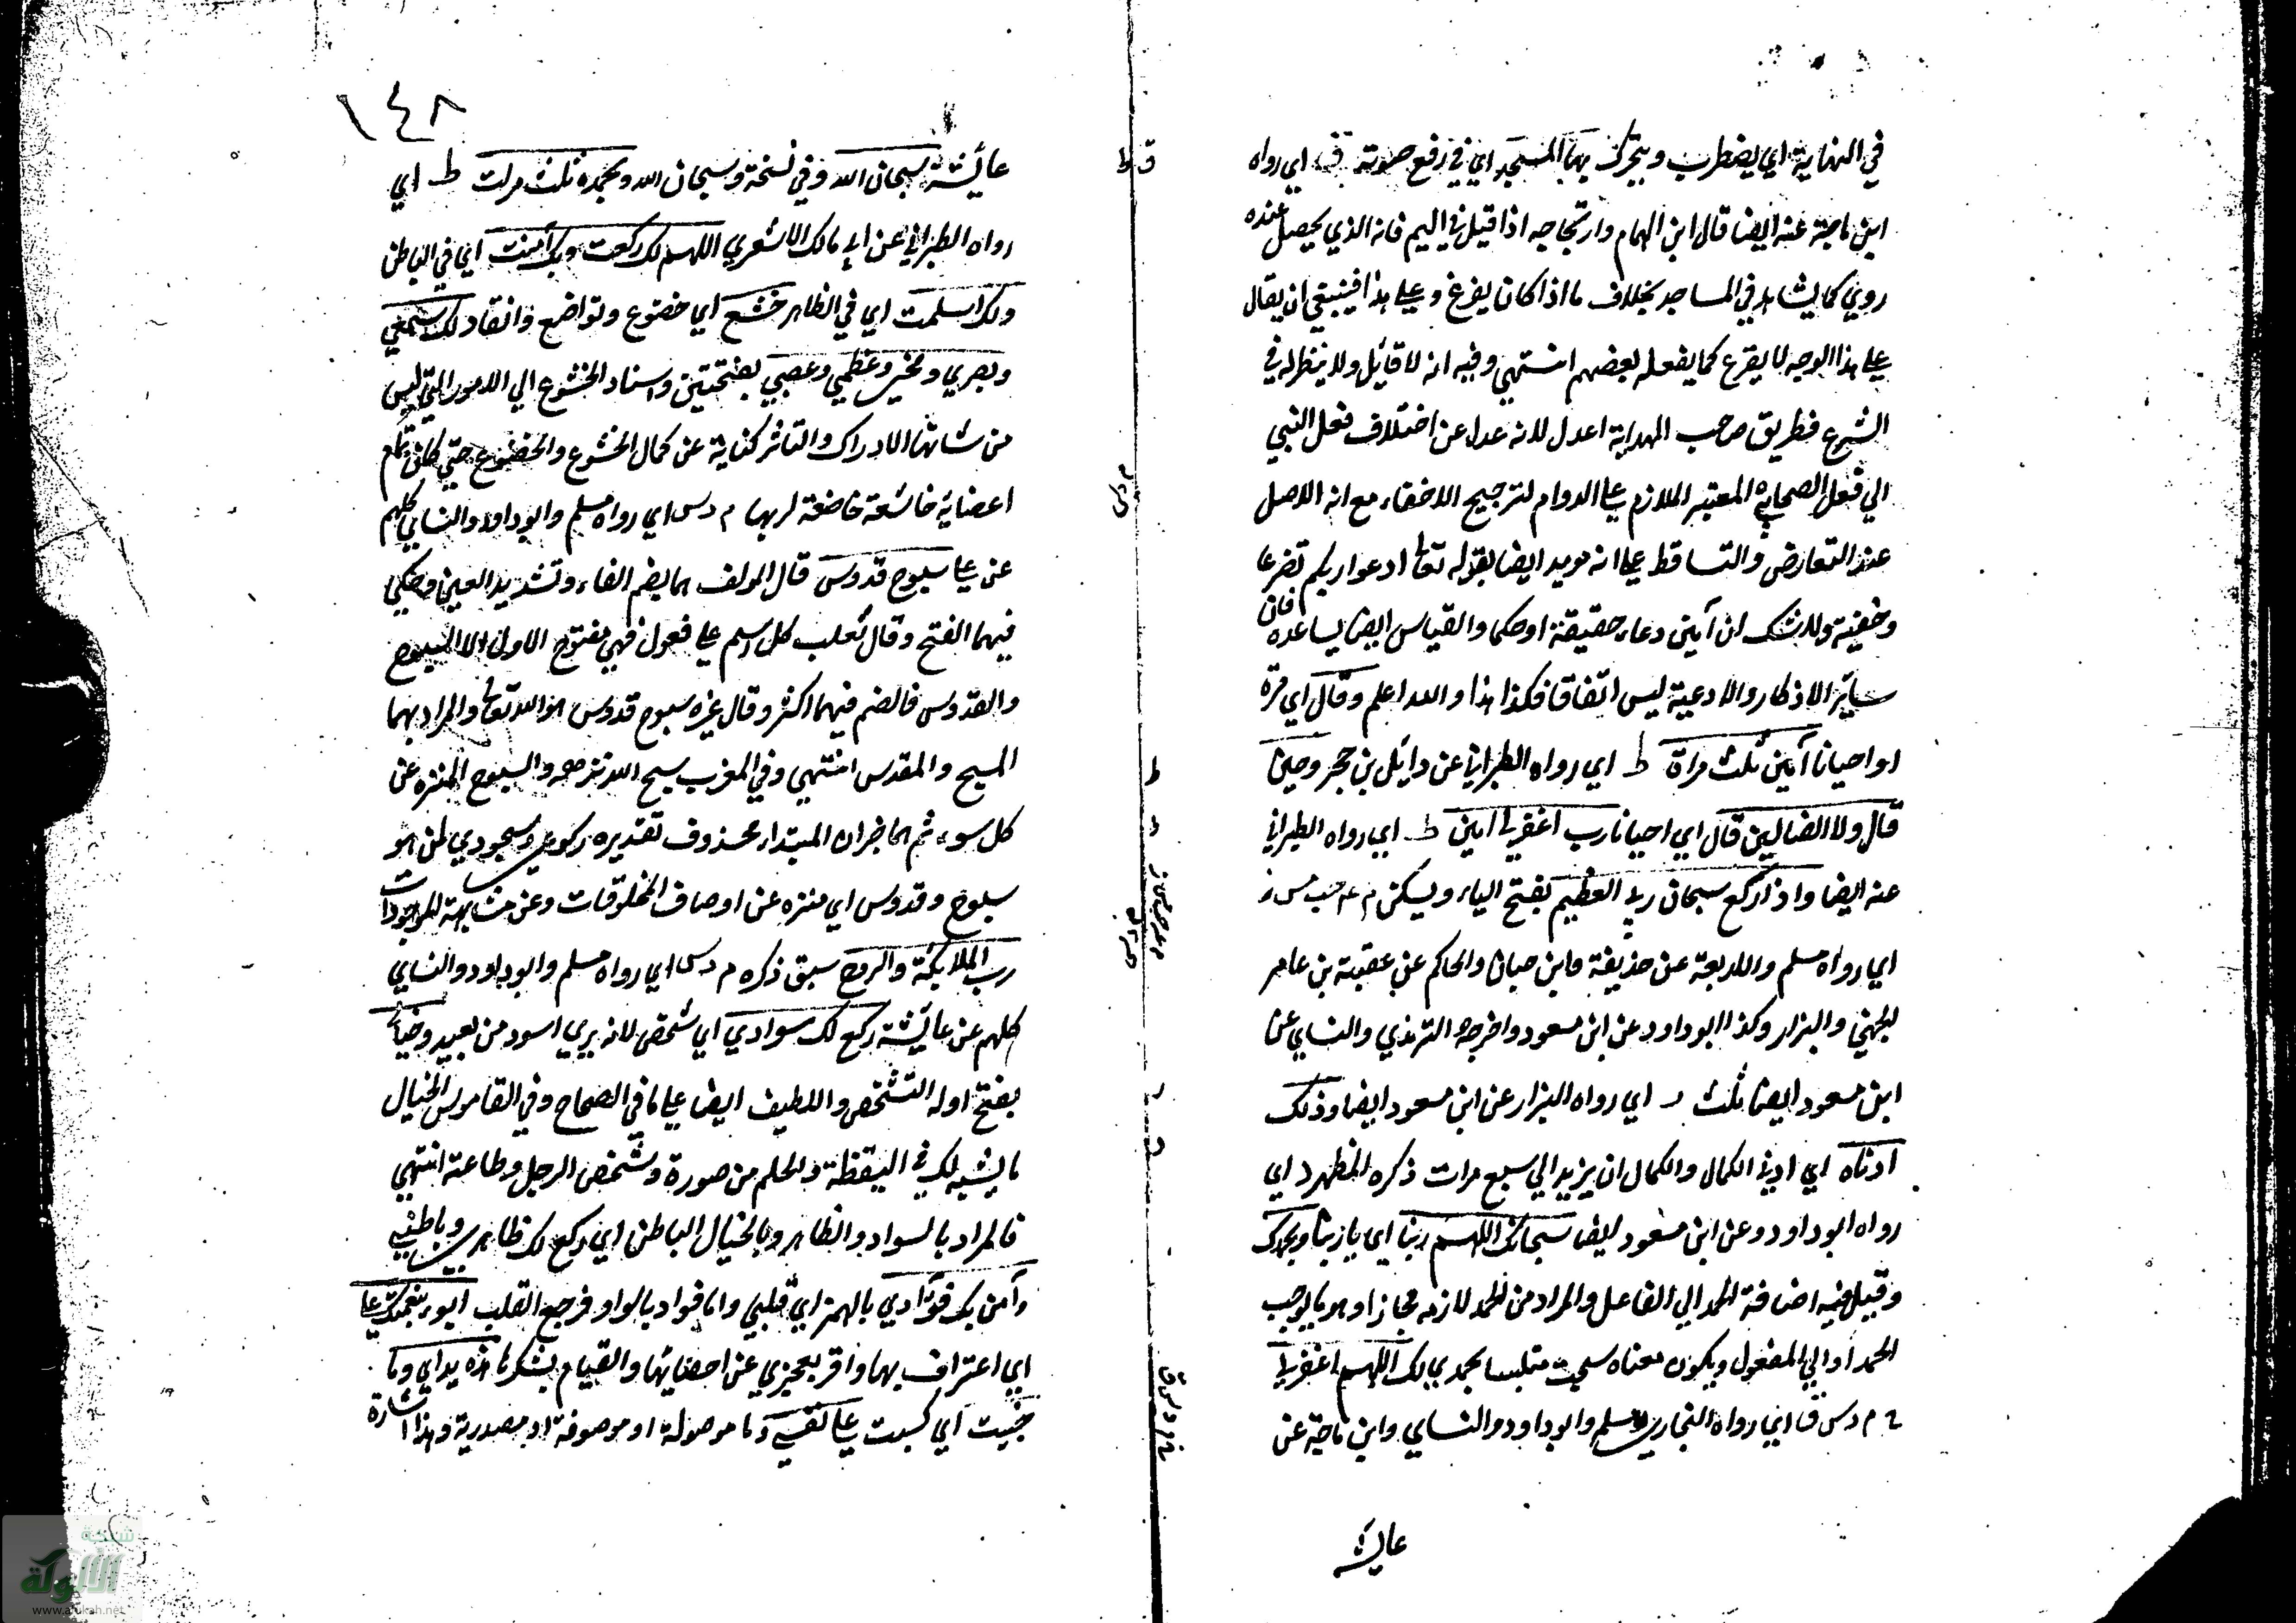 في النهاية اي يضطرب ويتحرك بها المسجد اي في رفع صوته ق اي رواه
ابن ماجة عنه ايضا قال ابن الهمام وارتجاجه اذا قيل في اليم فانه الذي يحصل عنده
دوي كما يشاهد في المساجد بخلاف ما اذا كان يقرع وعلي هذا فينبغي ان يقال
علي هذا الوجه لا يقرع كما يفعله بعضهم انتهي وفيه انه لا قايل ولا نظر له في
الشرع فطريق صاحب الهداية اعدل لانه عدل عن اختلاف فعل النبي
الي فعل الصحابة المعتبر الملازم علي الدوام لترجيح الاخفاء مع انه الاصل
عند التعارض والتساقط علي انه مويد ايضا بقوله تعالى ادعوا ربكم تضرعا
وخفية ولا شك ان آمين دعاء حقيقة او حكما والقياس ايضا يساعده فان
ساير الاذكار والادعية ليس اتفاقا فكذا هذا والله اعلم وقال اي مرة
او احيانا آمين ثلث مراة ط اي رواه الطبراني عن وائل بن حجر وحين
قال ولا الضالين قال اي احيانا رب اغفر لي امين ط اي رواه الطبراني
عنه ايضا واذا ركع سبحان ربي العظيم بفتح الياء ويسكن م عه حب مس ز
اي رواه مسلم والاربعة عن حذيفة وابن حبان والحاكم عن عقبة بن عامر
الجهني والبزار وكذا ابو داود عن ابن مسعود واخرجه الترمذي والنساي عن
ابن مسعود ايضا ثلث ر اي رواه البزار عن ابن مسعود ايضا وذلك
ادناه اي ادني الكمال والكمال ان يزيد الي سبع مرات ذكره المظهر د اي
رواه ابو داود وعن ابن مسعود ايضا سبحانك اللهم ربنا اي يا ربنا وبحمدك
وقيل فيه اضافة الحمد الي الفاعل والمراد من الحمد لازمه مجازا وهو ما يوجب
الحمد او الي المفعول ويكون معناه سبحت متلبسا بحمدي لك اللهم اغفر لي
خ م د س ق اي رواه البخاري ومسلم وابو داود والنساي وابن ماجة عن
عايشة
ق ط
م د س
ط
ط
ر
د
خ م د س ق
١٤٨
عايشة سبحان الله وفي نسخة وسبحان الله وبحمده ثلث مرات ط اي
رواه الطبراني عن ابي مالك الاشعري اللهم لك ركعت وبك آمنت اي في الباطن
ولك اسلمت اي في الظاهر خشع اي خضوع وتواضع وانقاد لك سمعي
وبصري ومخي وعظمي وعصبي بفتحتين واسناد الخشوع الي الامور التي ليس
من شانها الادراك والتاثر كناية عن كمال الخشوع والخضوع حتي كان تمام
اعضايه خاشعة خاضعة لربها م د س اي رواه مسلم وابو داود والنساي كلهم
عن علي سبوح قدوس قال المولف هما بضم الفاء وتشديد العين وحكي
فيهما الفتح وقال ثعلب كل اسم علي فعول فهي مفتوح الاول الا السبوح
والقدوس فالضم فيهما اكثر وقال غيره سبوح قدوس هو الله تعالى والمراد بهما
المسبح والمقدس انتهي وفي المغرب سبح الله نزهه والسبوح المنزه عن
كل سوء ثم هما خبران المبتداء محذوف تقديره ركوعي وسجودي لمن هو
سبوح وقدوس اي منزه عن اوصاف المخلوقات وعن مشابهة الموجودات
رب الملايكة والروح سبق ذكره م د س اي رواه مسلم وابو داود والنساي
كلهم عن عايشة ركع لك سوادي اي شخصي لانه يري اسود من بعيد وخيالي
بفتح اوله التشخص واللطيف ايضا علي ما في الصحاح وفي القاموس الخيال
ما يشبه لك في اليقظة والحلم من صورة وشخص الرجل وطاعته انتهي
فالمراد بالسواد والظاهر وبالخيال الباطن اي ركع لك ظاهري وباطني
وآمن بك فؤادي بالهمز اي قلبي واما فواد بالواو فرجع القلب ابوء بنعمتك علي
اي اعتراف بها واقر بعجزي عن احصايها والقيام بشكرها هذه يداي وما
جنيت اي كسبت علي نفسي وما موصولة او موصوفة او مصدرية وهذا اشارة
شبكة
الألوكة
www.alukah.net